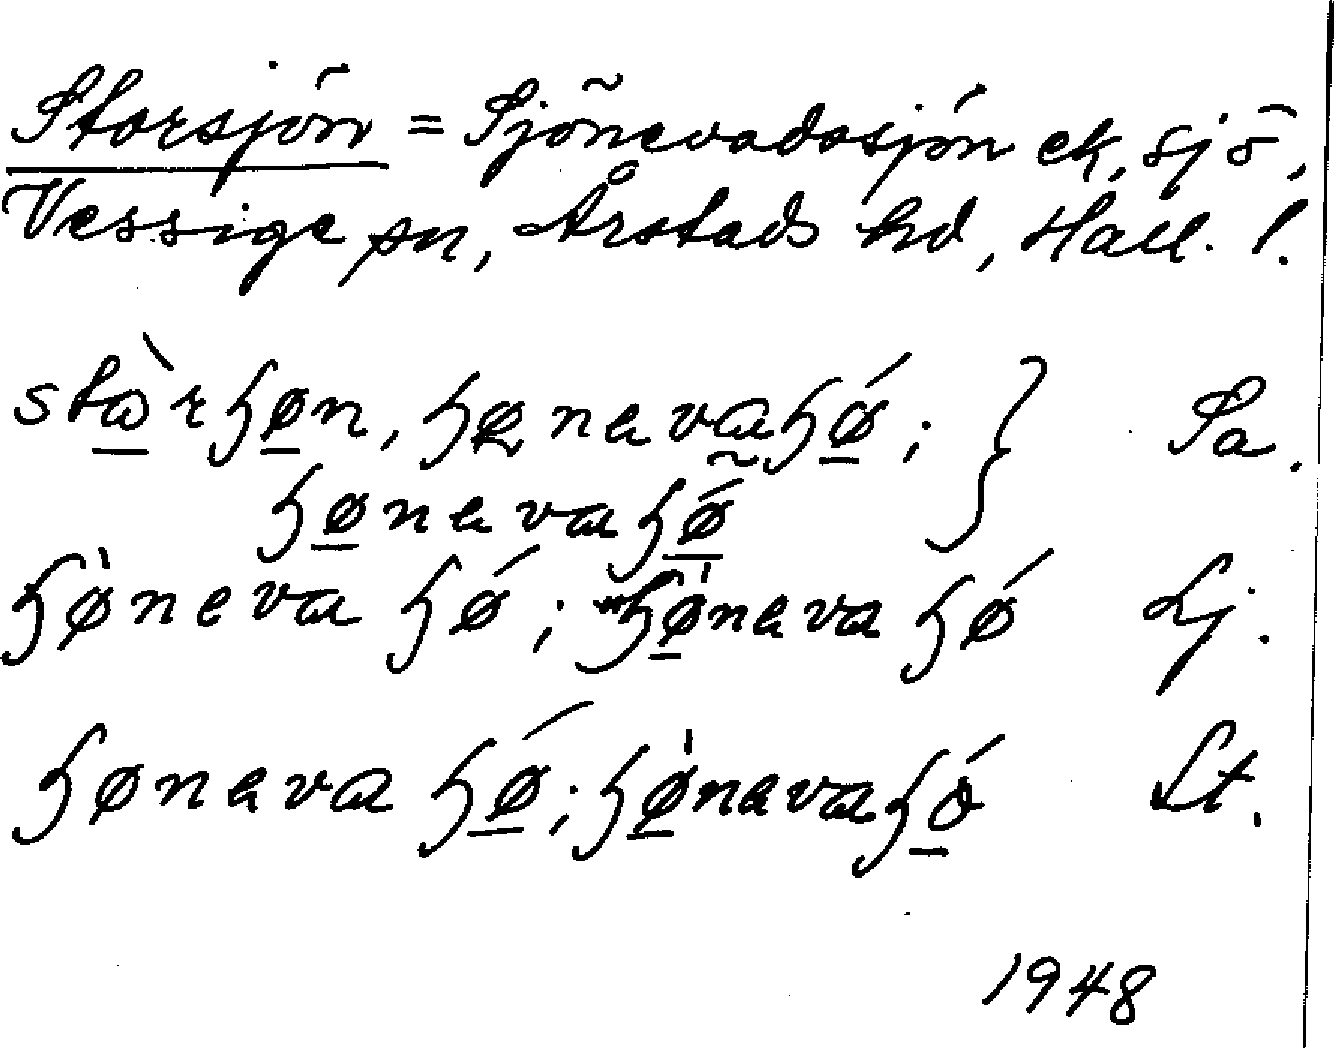 Storsjön = Sjönevadssjön ek, sjö,
Vessige sn, Årstads hd, Hall. l.
stὼ̲rɧø̲n, ɧønevaɧǿ̲; } Sa.
ɧø̲nevaɧø̲̃́
ɧø̀neva ɧǿ; ɧø̲̀neva ɧǿ Lj.
ɧøneva ɧǿ̲; ɧø̲̀nevaɧó̲ Lt.
1948